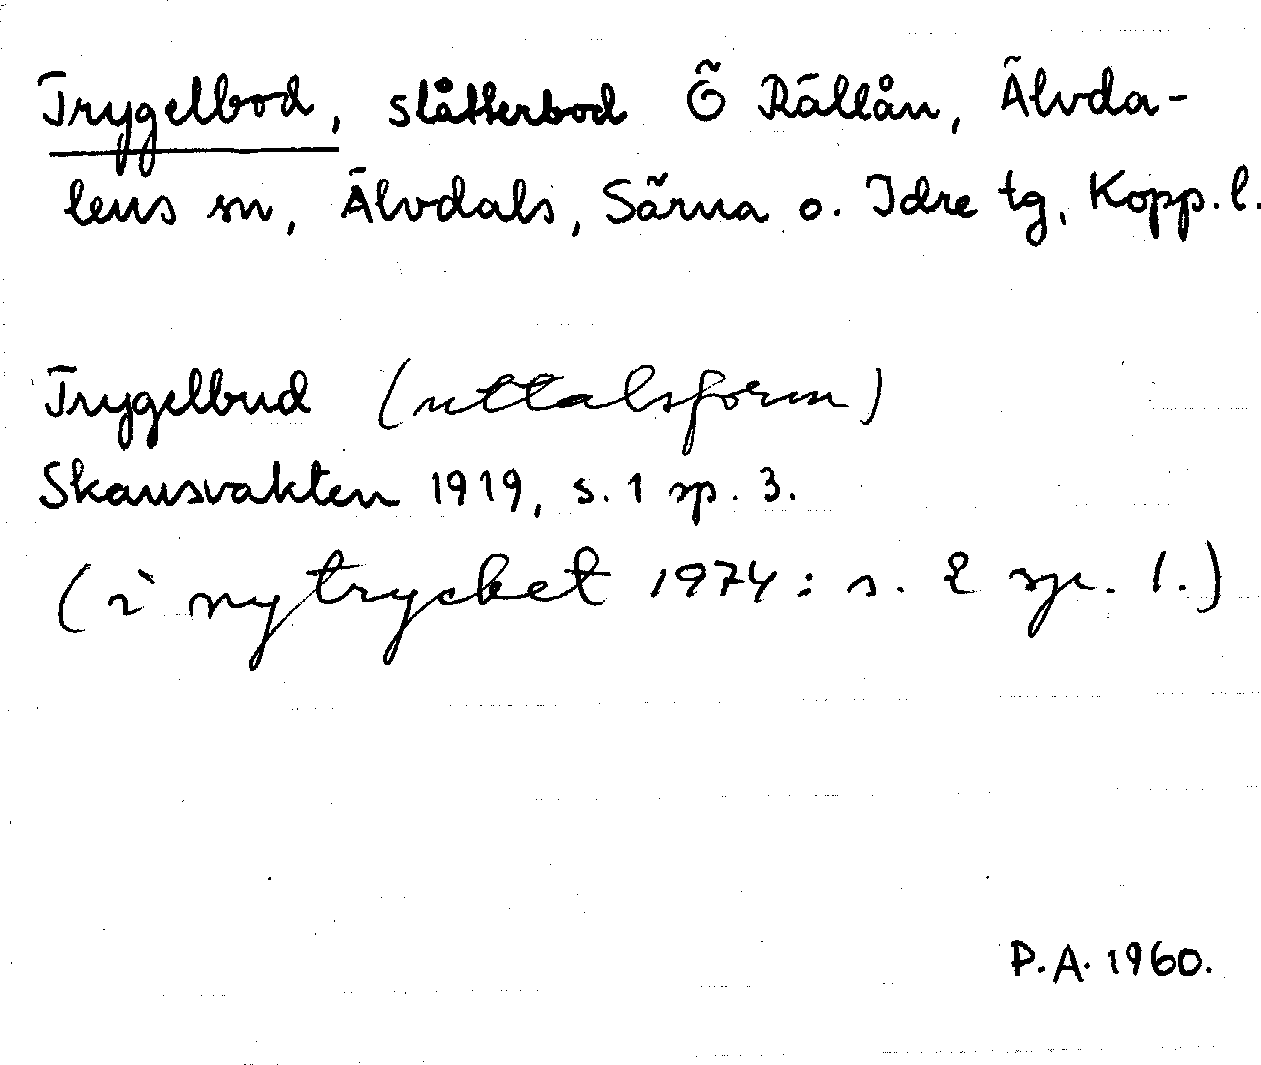 Trygelbod, slåtterbod Ö Rällån, Älvda-
lens sn, Älvdals, Särna o. Idre tg, Kopp. l.
Trygelbud (uttalsform)
Skansvakten 1919, s. 1 sp. 3.
(i nytrycket 1974: s. 2 sp. 1.)
P.A. 1960.